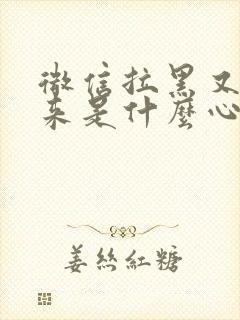 微信拉黑又
来是什麼心
姜絲紅糖